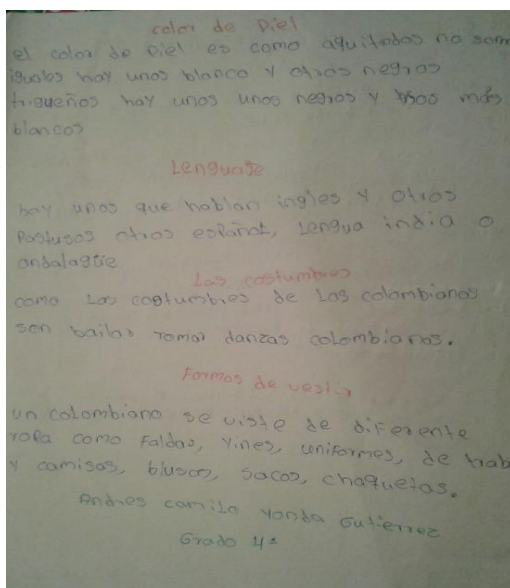 color de Piel
el color de Piel es como aquitodos no som
iguales hay unos blanco y otros negros
trigueños hay unos unos negros y más
blancos
Lenguaje
hay unos que hablan ingles y otros
Pastusos otros español, Lengua india o
andalagüe
Las costumbres
como Las costumbres de Las colombianos
son bailar tomar danzas colombianas.
Formas de vestir
un colombiano se viste de diferente
ropa como Faldas, Yines, uniformes, de trab
y camisas, blusas, sacos, chaquetas.
Andres camilo Yonda Gutierrez
Grado 4º